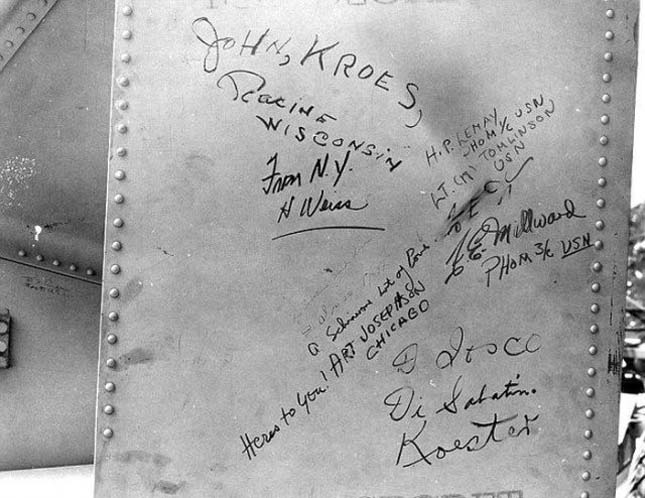 JOHN, KROES,
Racine
WISCONSIN
From N.Y.
H Weiss
H.P. LEMAY
PHOM 1/c USN
LT. (M) TOMLINSON
USN
Millward
PHOM 3/c USN
a Schramm Lot of Pave
Heres to You! ART JOSEPHSON
CHICAGO
D Tosco
Di Sabatin.
Koester